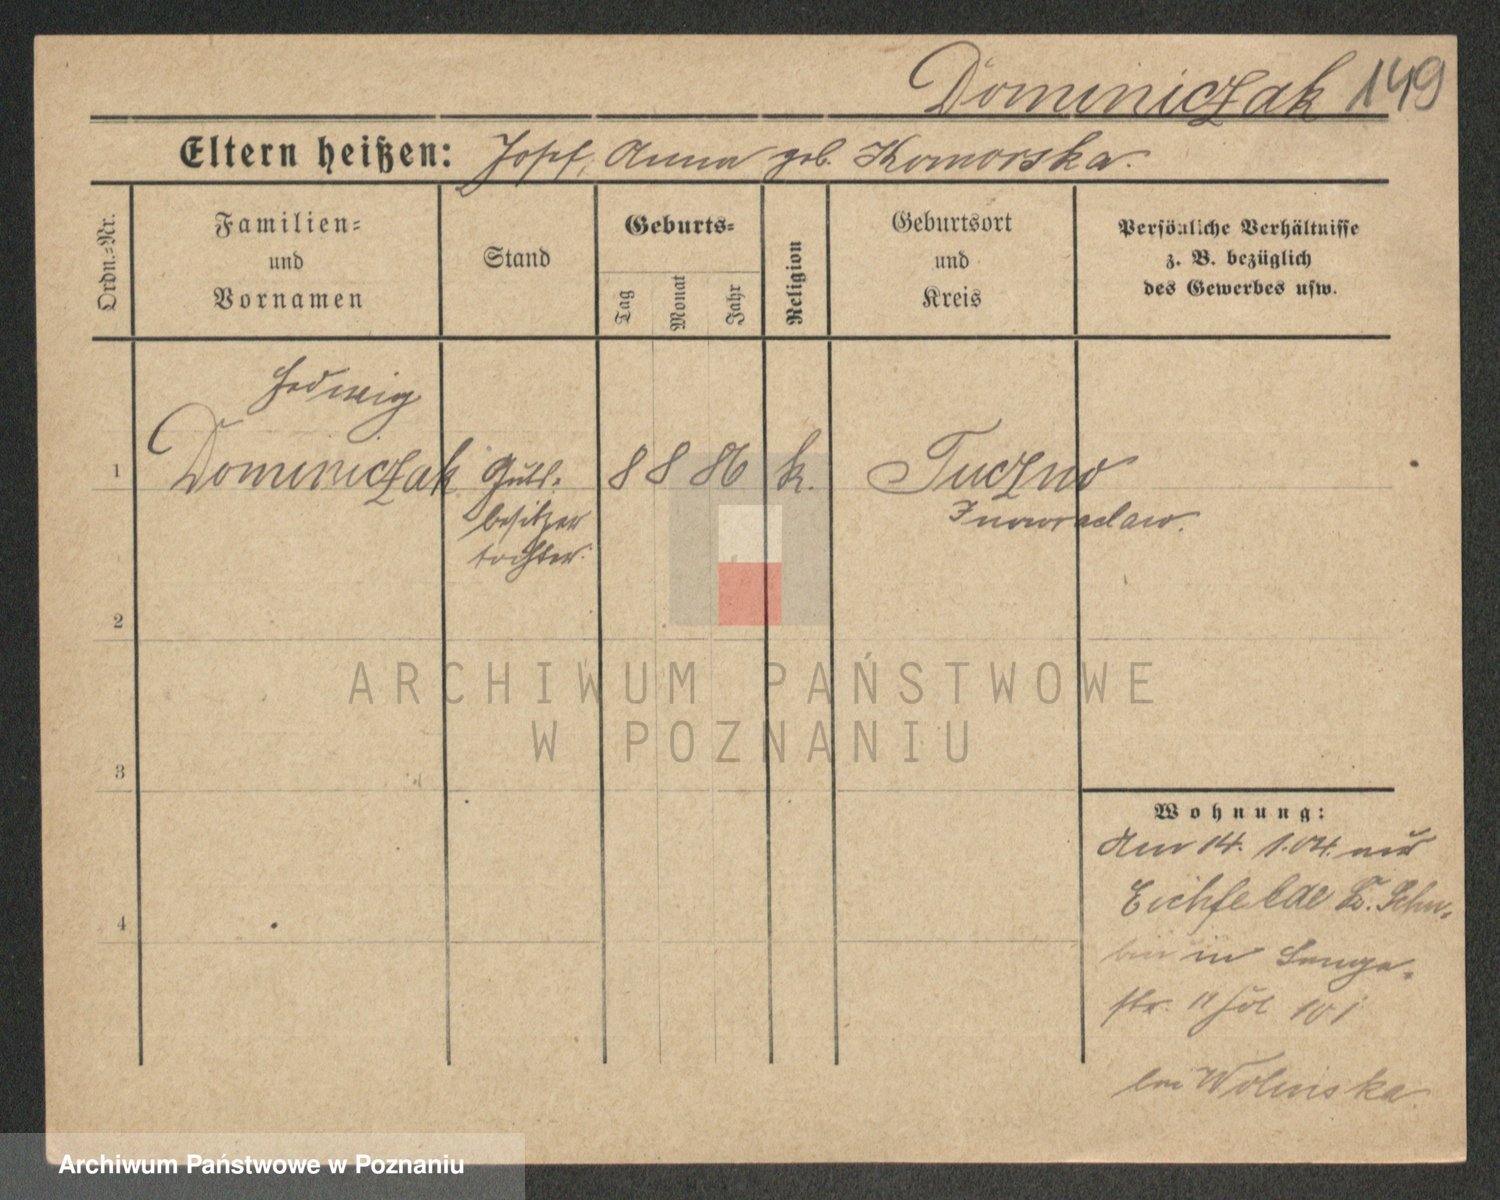 Dominiczak 149
Eltern heißen: Josef, Anna geb. Komorska.
Ordn.=Nr.
Familien=
und
Vornamen
Stand
Geburts=
Tag
Monat
Jahr
Religion
Geburtsort
und
Kreis
Persönliche Verhältnisse
z. B. bezüglich
des Gewerbes usw.
Hedwig
1 Dominiczak Guts- 8 8 86 k. Tuczno
besitzer Inowraclaw.
tochter.
2
3
4
Wohnung:
Am 14. 1.04. aus
Eichfelde Kr. Schu-
bin in Lange-
str. 11
bei Wolinska
ARCHIWUM PAŃSTWOWE
W POZNANIU
Archiwum Państwowe w Poznaniu